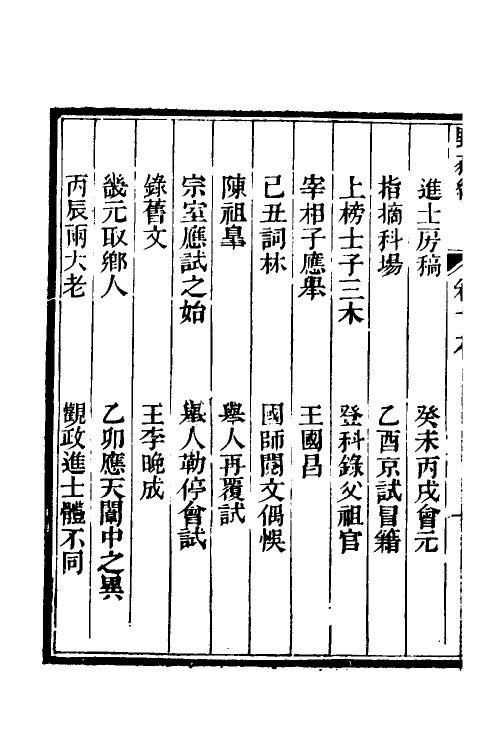 進士房稿　癸未丙戌會元
指摘科場　乙酉京試冒籍
上榜士子三木　登科錄父祖官
宰相子應舉　王國昌
己丑詞林　國師閱文偶悞
陳祖皐　舉人再覆試
宗室應試之始　舉人勒停會試
錄舊文　王李晚成
畿元取鄉人　乙卯應天闈中之異
丙辰兩大老　觀政進士體不同